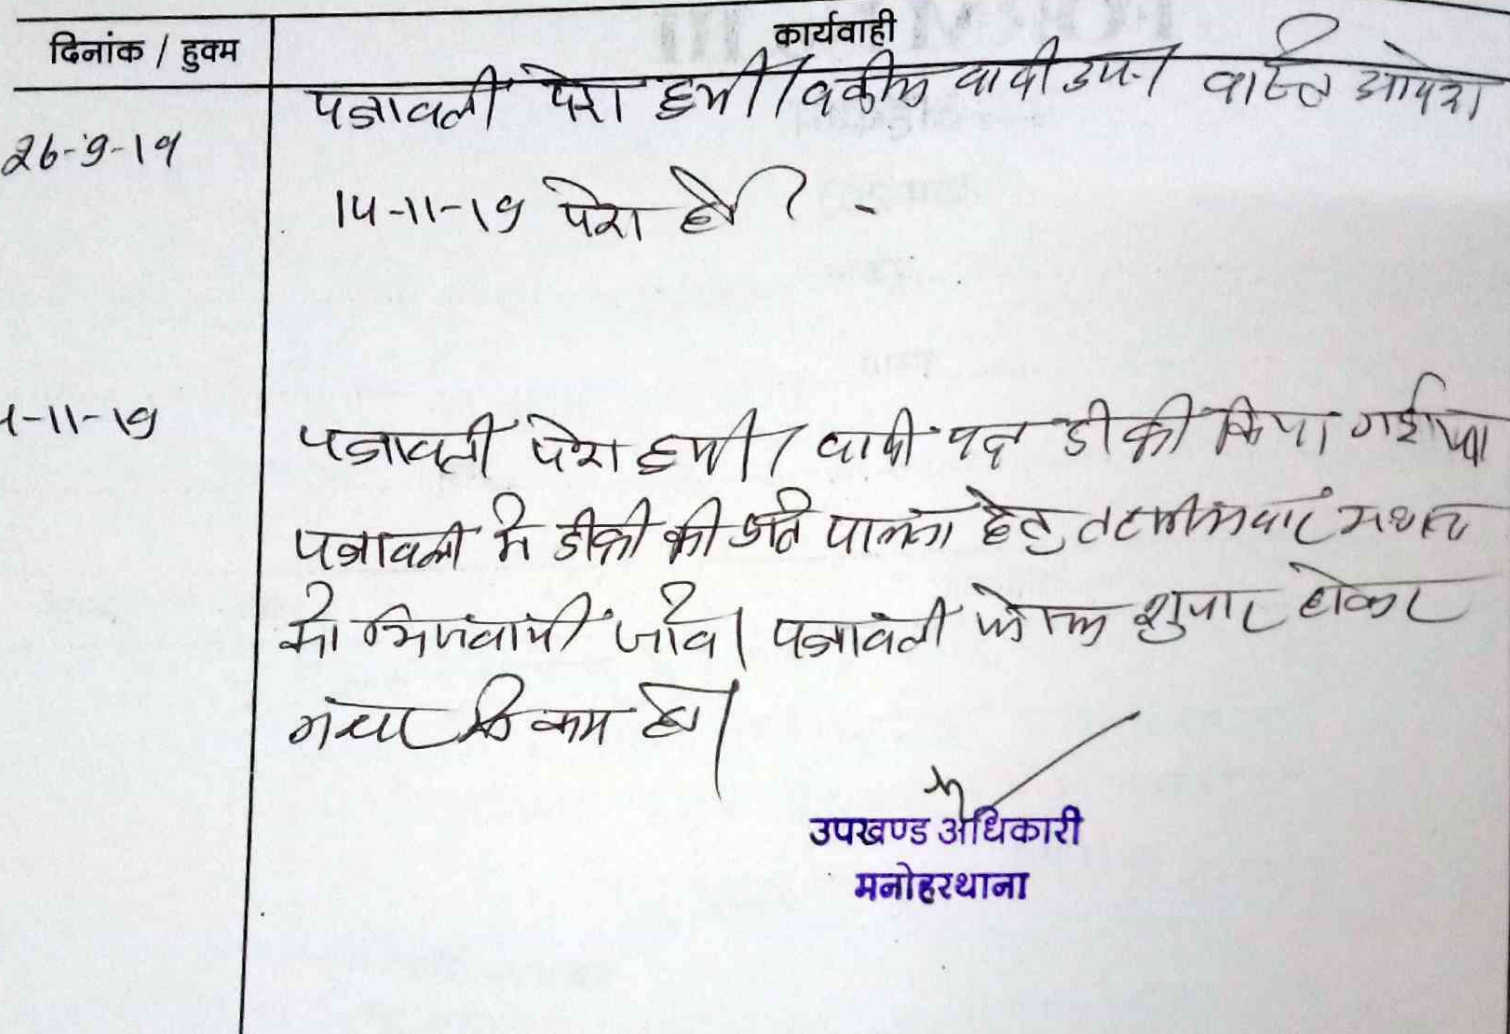 दिनांक / हुक्म
कार्यवाही
26-9-19
पत्रावली पेश हुयी। वकील वादी उप.। वास्ते आदेश
14-11-19 पेश हो।
-11-19
पत्रावली पेश हुयी। वादी पक्ष डीक्री किया गई।
पत्रावली मे डीक्री की प्रति पालना हेतु तहसीलदार
को भिजवायी जावे। पत्रावली फैसल शुमार होकर
नम्बर से कम हो।
उपखण्ड अधिकारी
मनोहरथाना